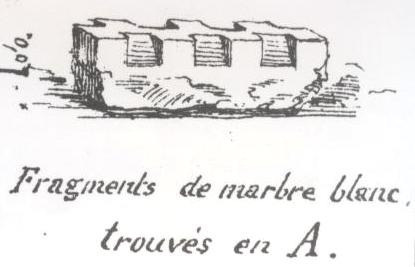 Fragments de marbre blanc,
trouvés en A.